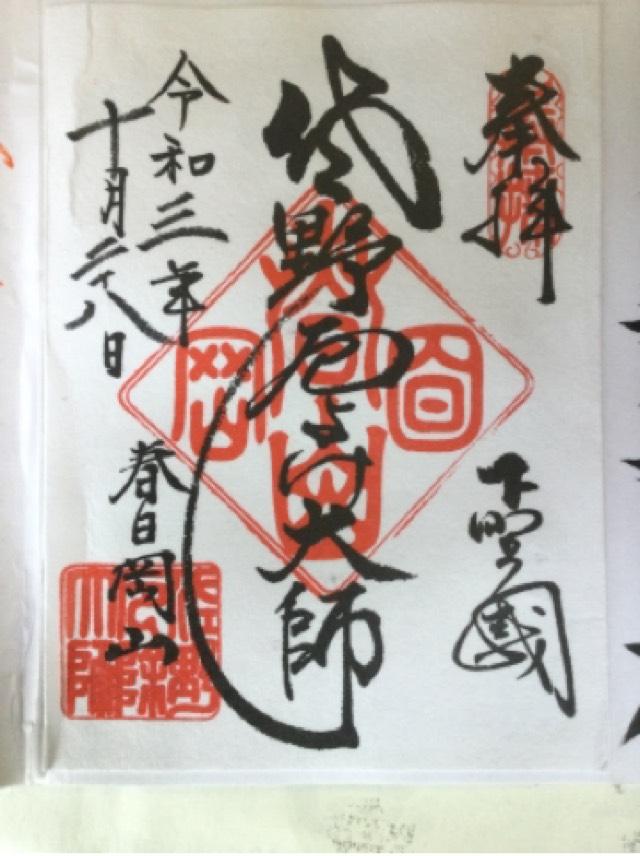 奉拝
下野國
佐野厄よけ大師
令和三年
十月二十八日
春日岡山